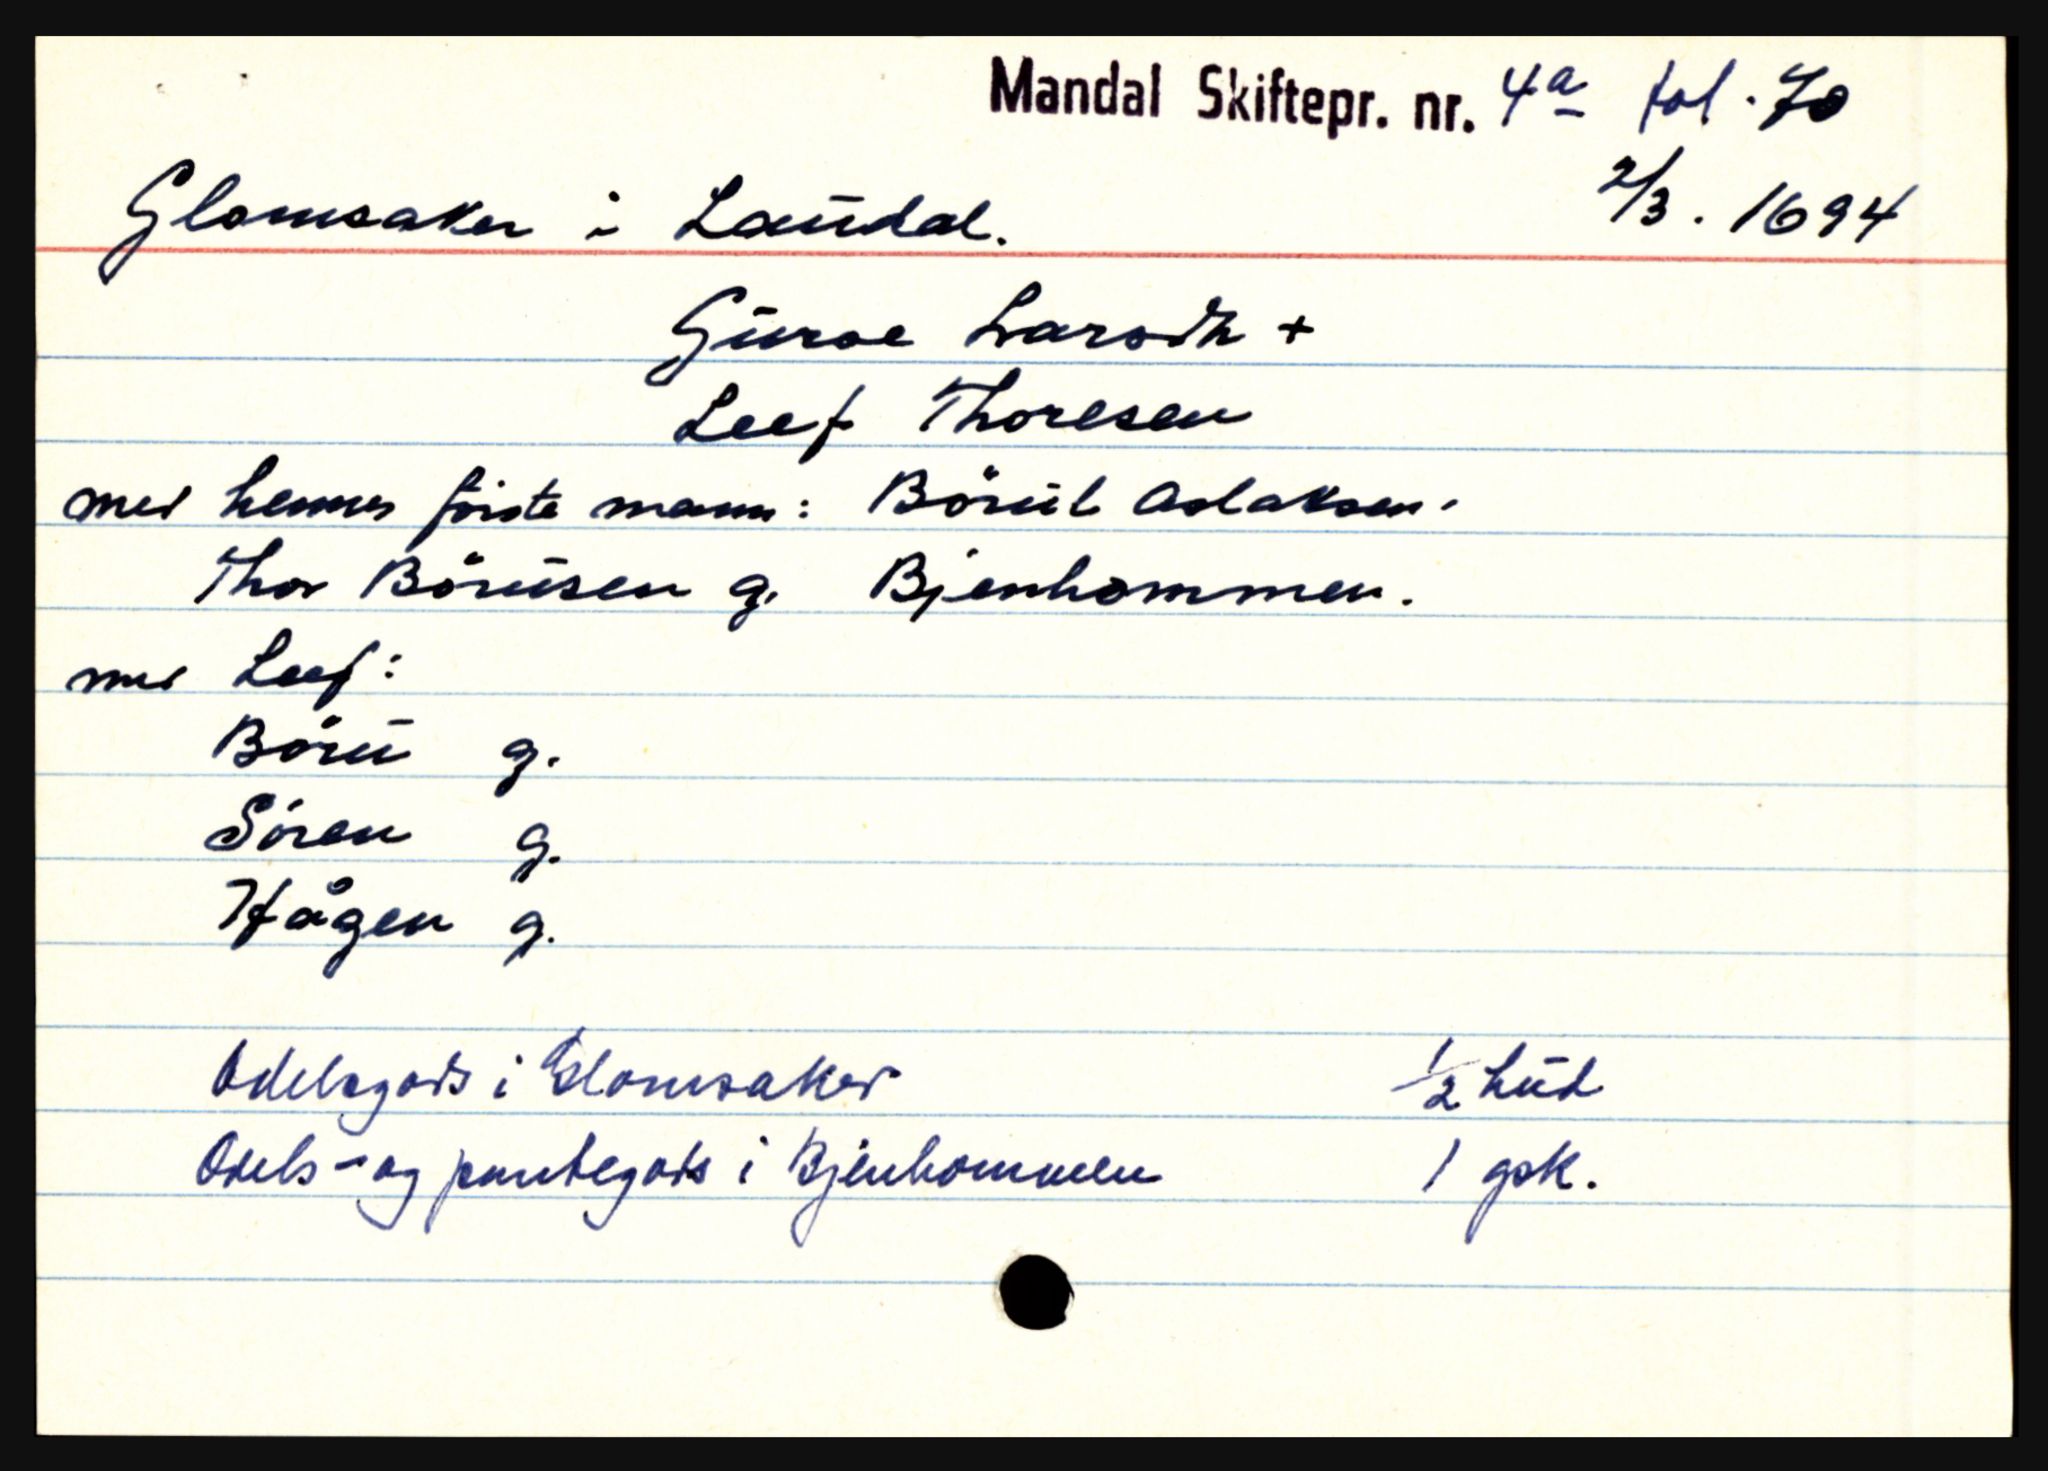 Mandal Skiftepr. nr. 4a fol. 70
2/3. 1694
Glomsaker i Laudal.
Guroe Larsdh +
Leef Thoresen
med hennes første mann: Börul Aslaksen.
Thor Börusen g. Bjenhommen.
med Leef:
Böru g.
Sören g.
Hågen g.
Odelsgods i Glomsaker 1/2 hud
Odels- og pantegods i Bjenhommen 1 gsk.